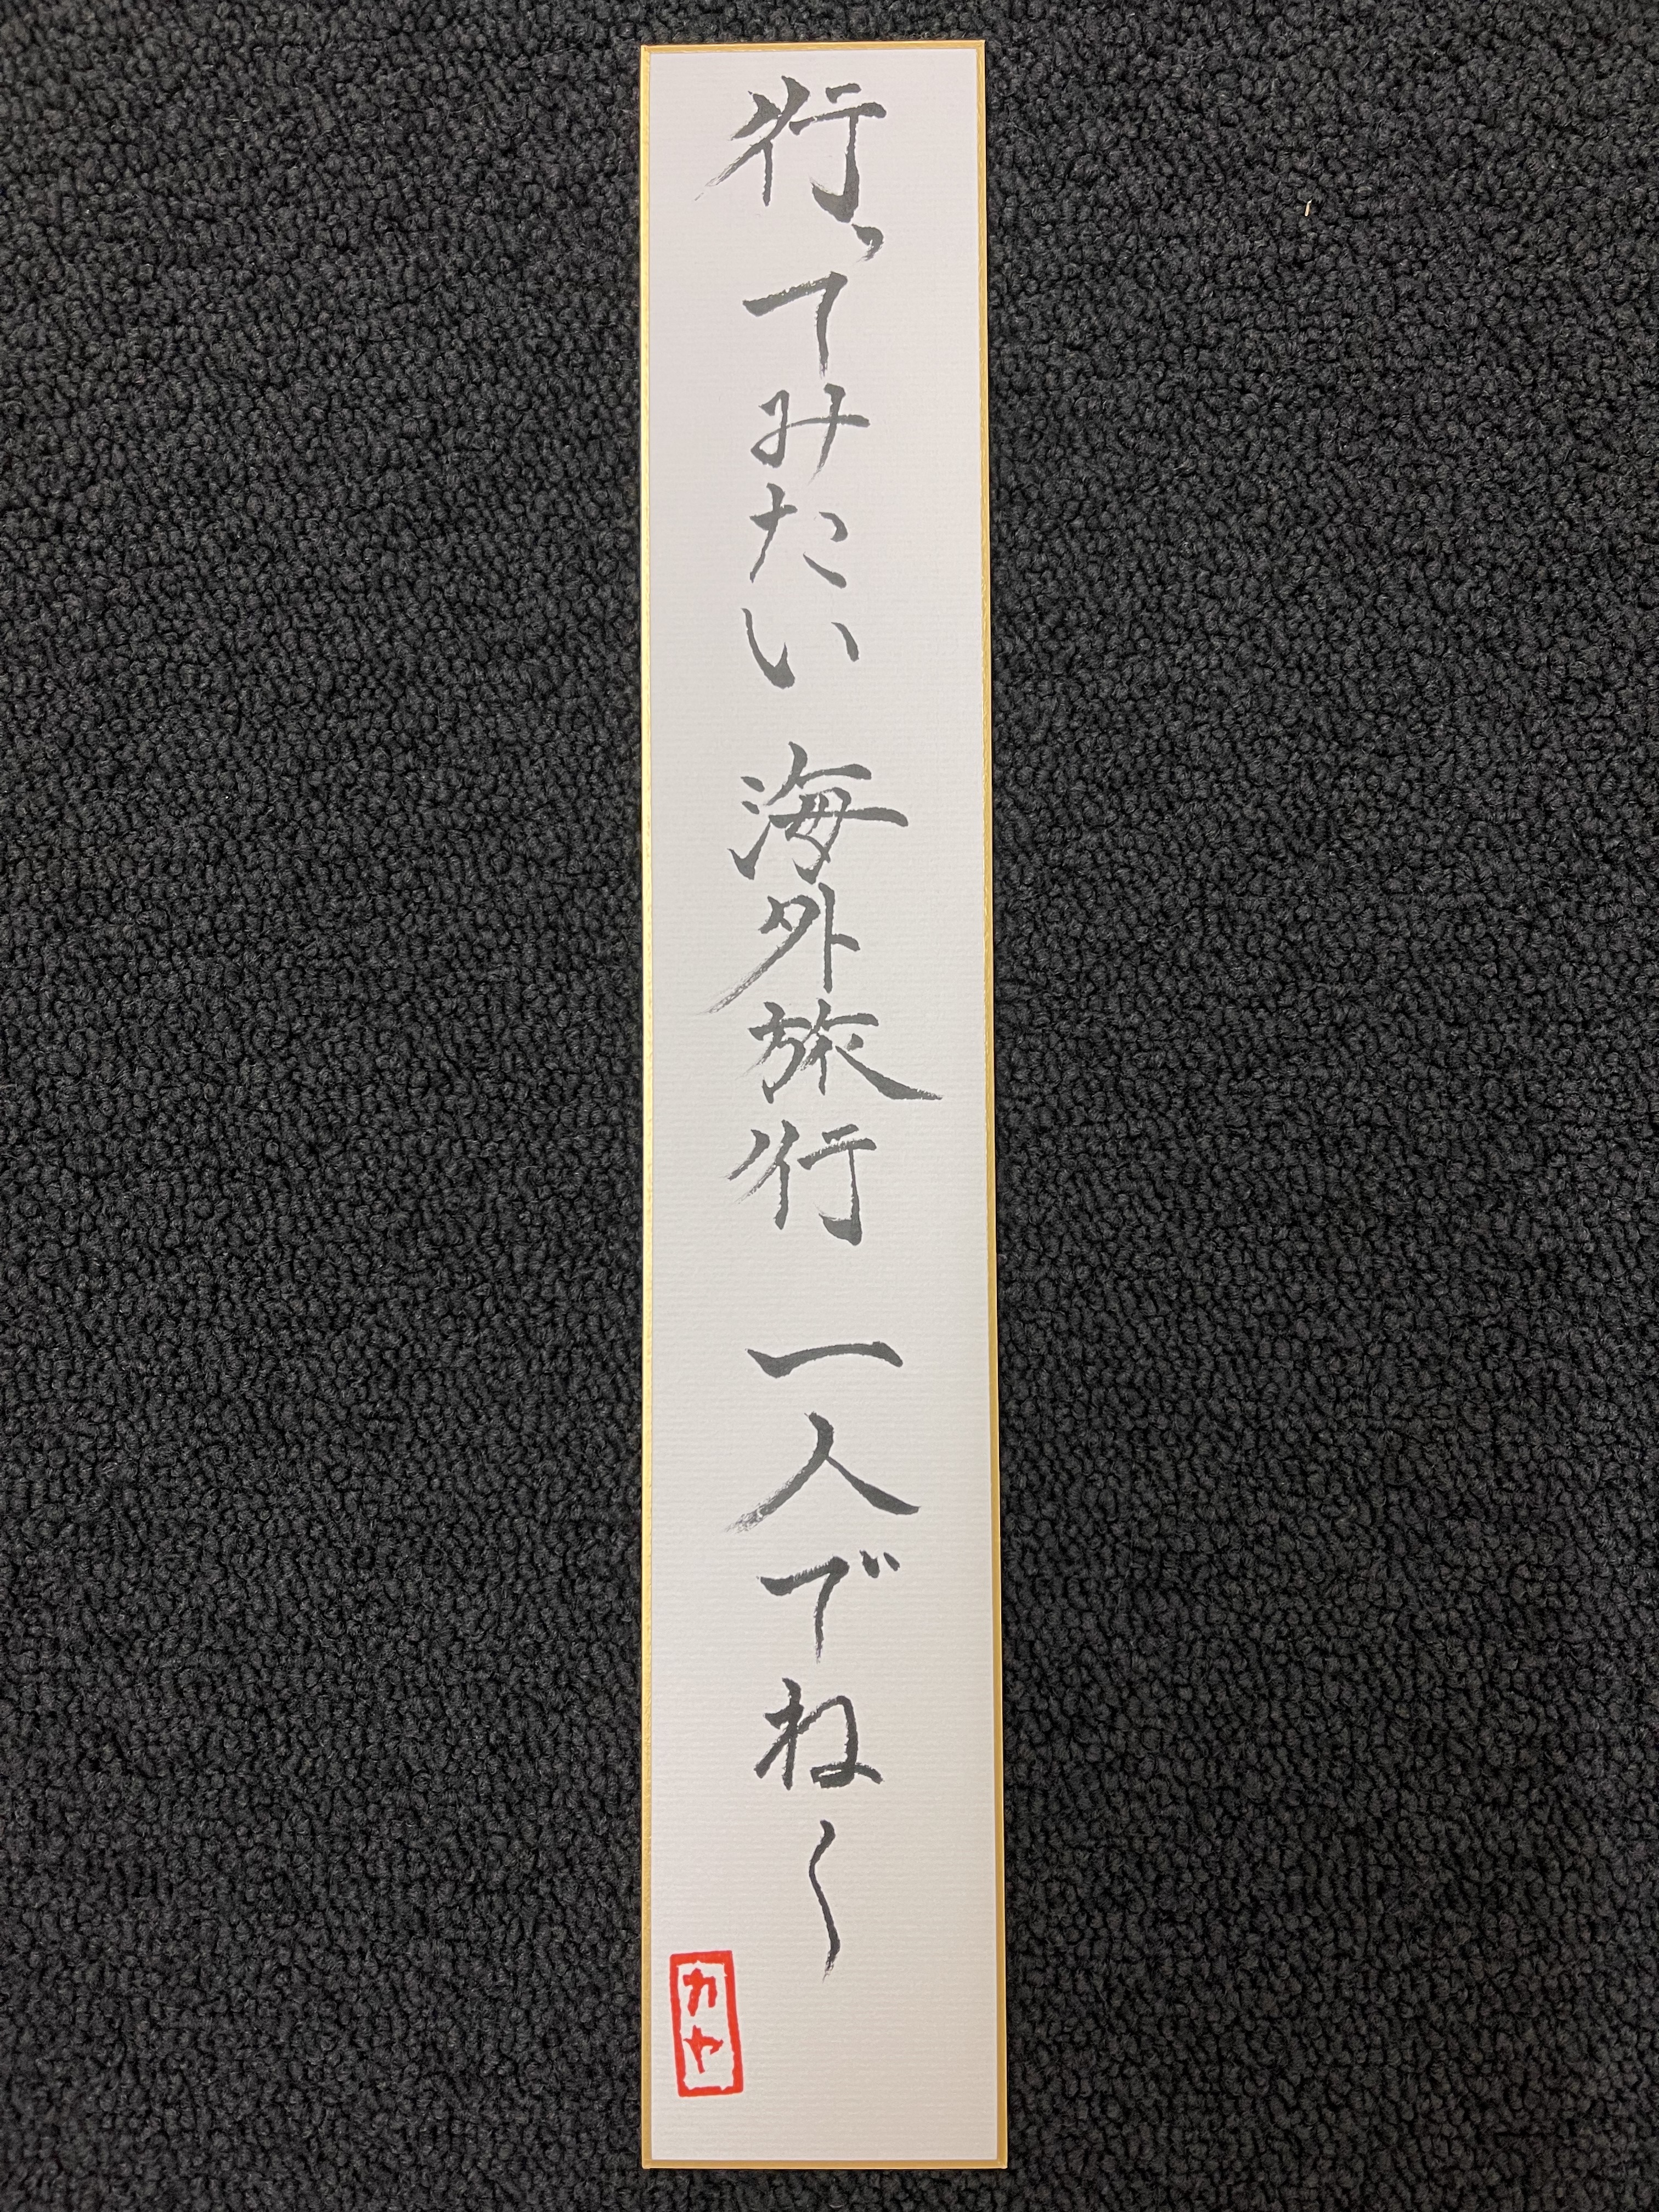 行ってみたい 海外旅行 一人でね〜
カヤ